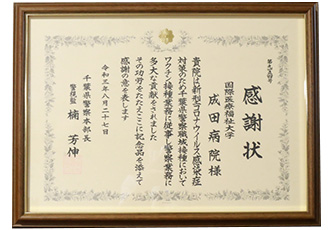 感謝状
国際医療福祉大学
成田病院様
貴院は新型コロナウイルス感染症
対策のため千葉県警察職域接種において
ワクチン接種業務に従事し警察業務に
多大な貢献をされました
その功労をたたえここに記念品を添えて
感謝の意を表します
令和三年八月二十七日
千葉県警察本部長
警視監 楠 芳伸